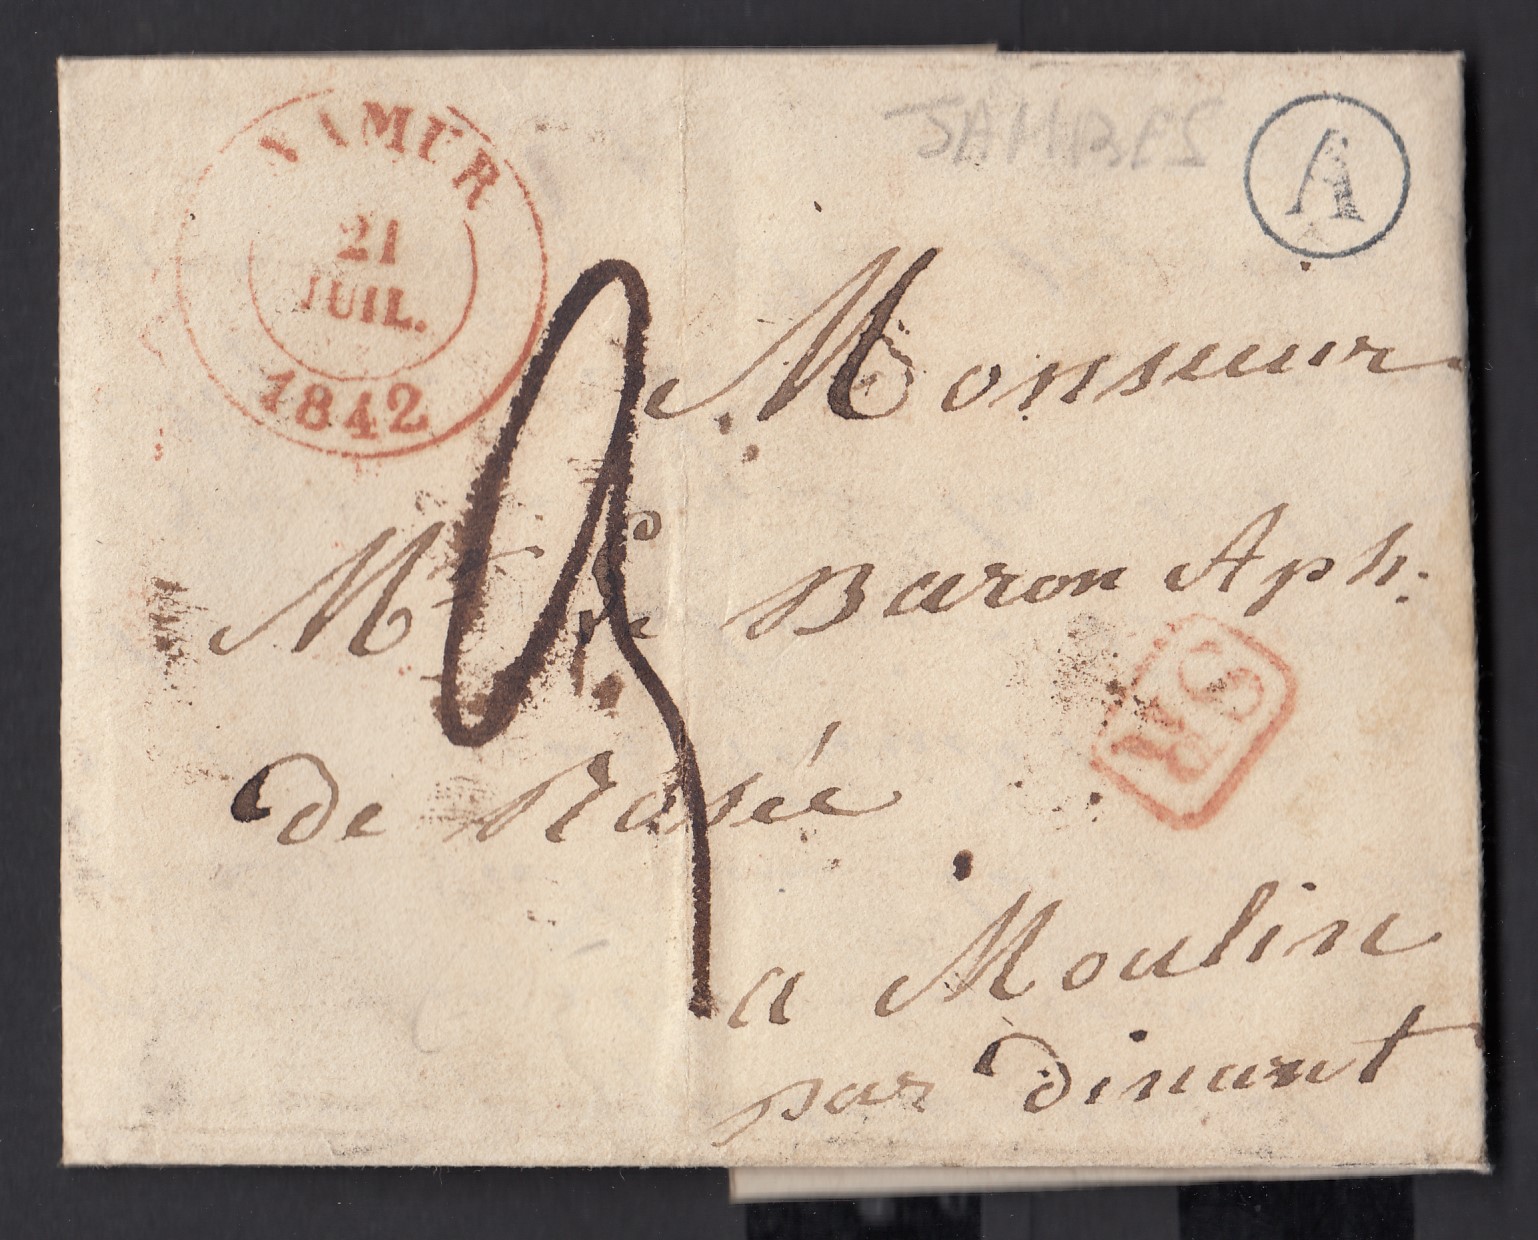 NAMUR
21
JUIL.
1842
JAMBES
A
Monsieur
Mr le Baron Aph.
de Rosée
SR
a Moulin
par dinant